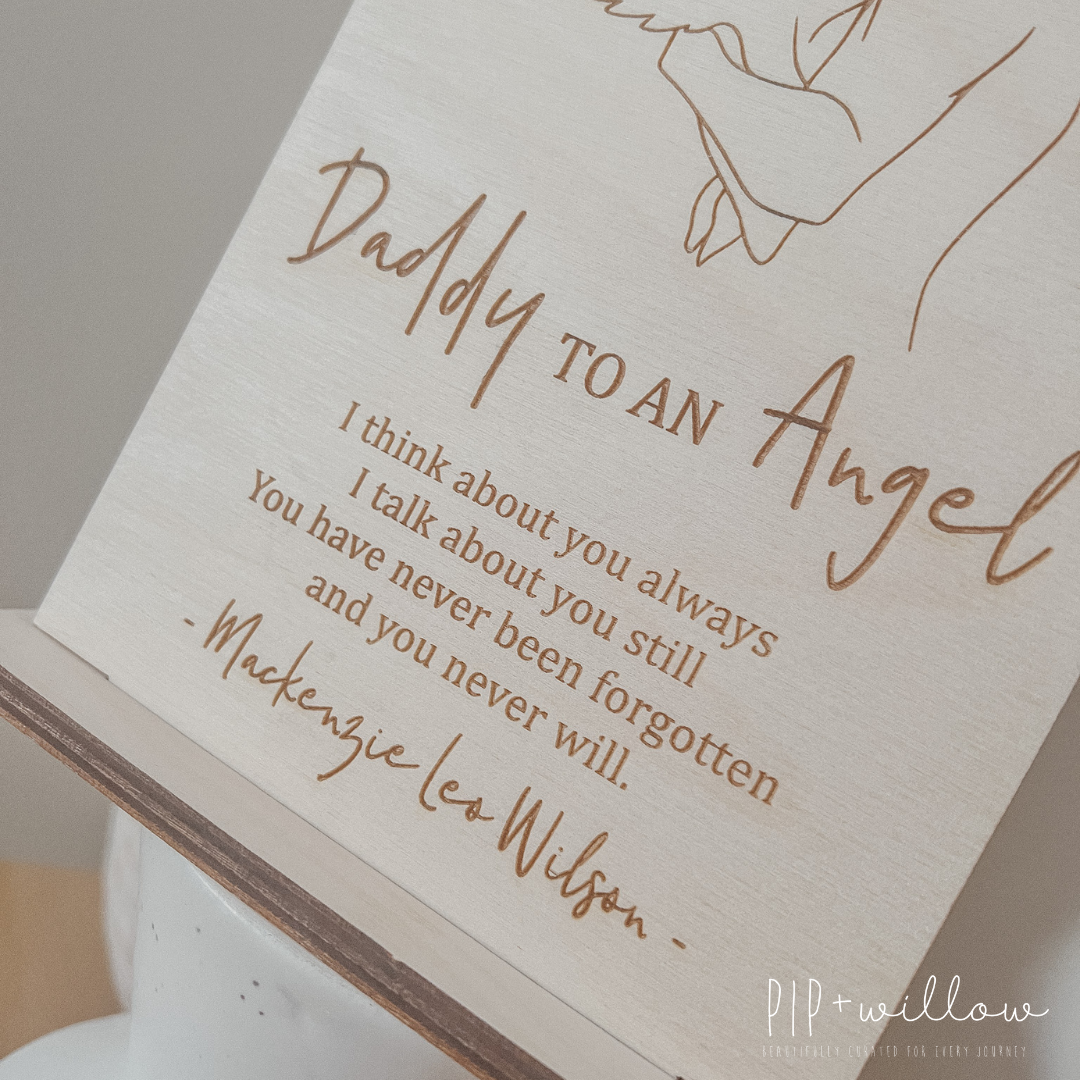 Daddy TO AN Angel
I think about you always
I talk about you still
You have never been forgotten
and you never will.
- Mackenzie Leo Wilson -
PIP+willow
BEAUTIFULLY CURATED FOR EVERY JOURNEY